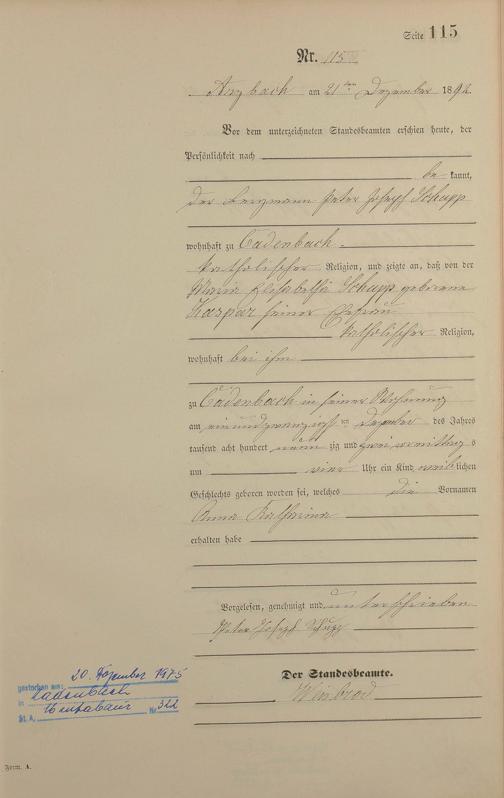 Seite 115
Nr. 115
Arzbach am 21ten Dezember 1892.
Vor dem unterzeichneten Standesbeamten erschien heute, der
Persönlichkeit nach
be kannt,
der Bergmann Peter Joseph Schupp
wohnhaft zu Cadenbach
katholischer Religion, und zeigte an, daß von der
Maria Elisabetha Schupp geborene
Kaspar seiner Ehefrau
katholischer Religion,
wohnhaft bei ihm
zu Cadenbach in seiner Wohnung
am einundzwanzigsten Dezember des Jahres
tausend acht hundert neun zig und zwei vormittag s
um vier Uhr ein Kind weiblichen
Geschlechts geboren worden sei, welches die Vornamen
Anna Katharina
erhalten habe
Vorgelesen, genehmigt und unterschrieben
Peter Joseph Schupp
Der Standesbeamte.
gestorben am: 20. Dezember 1975
in Cadenbach
St. A. Nr. 322
Form. A.